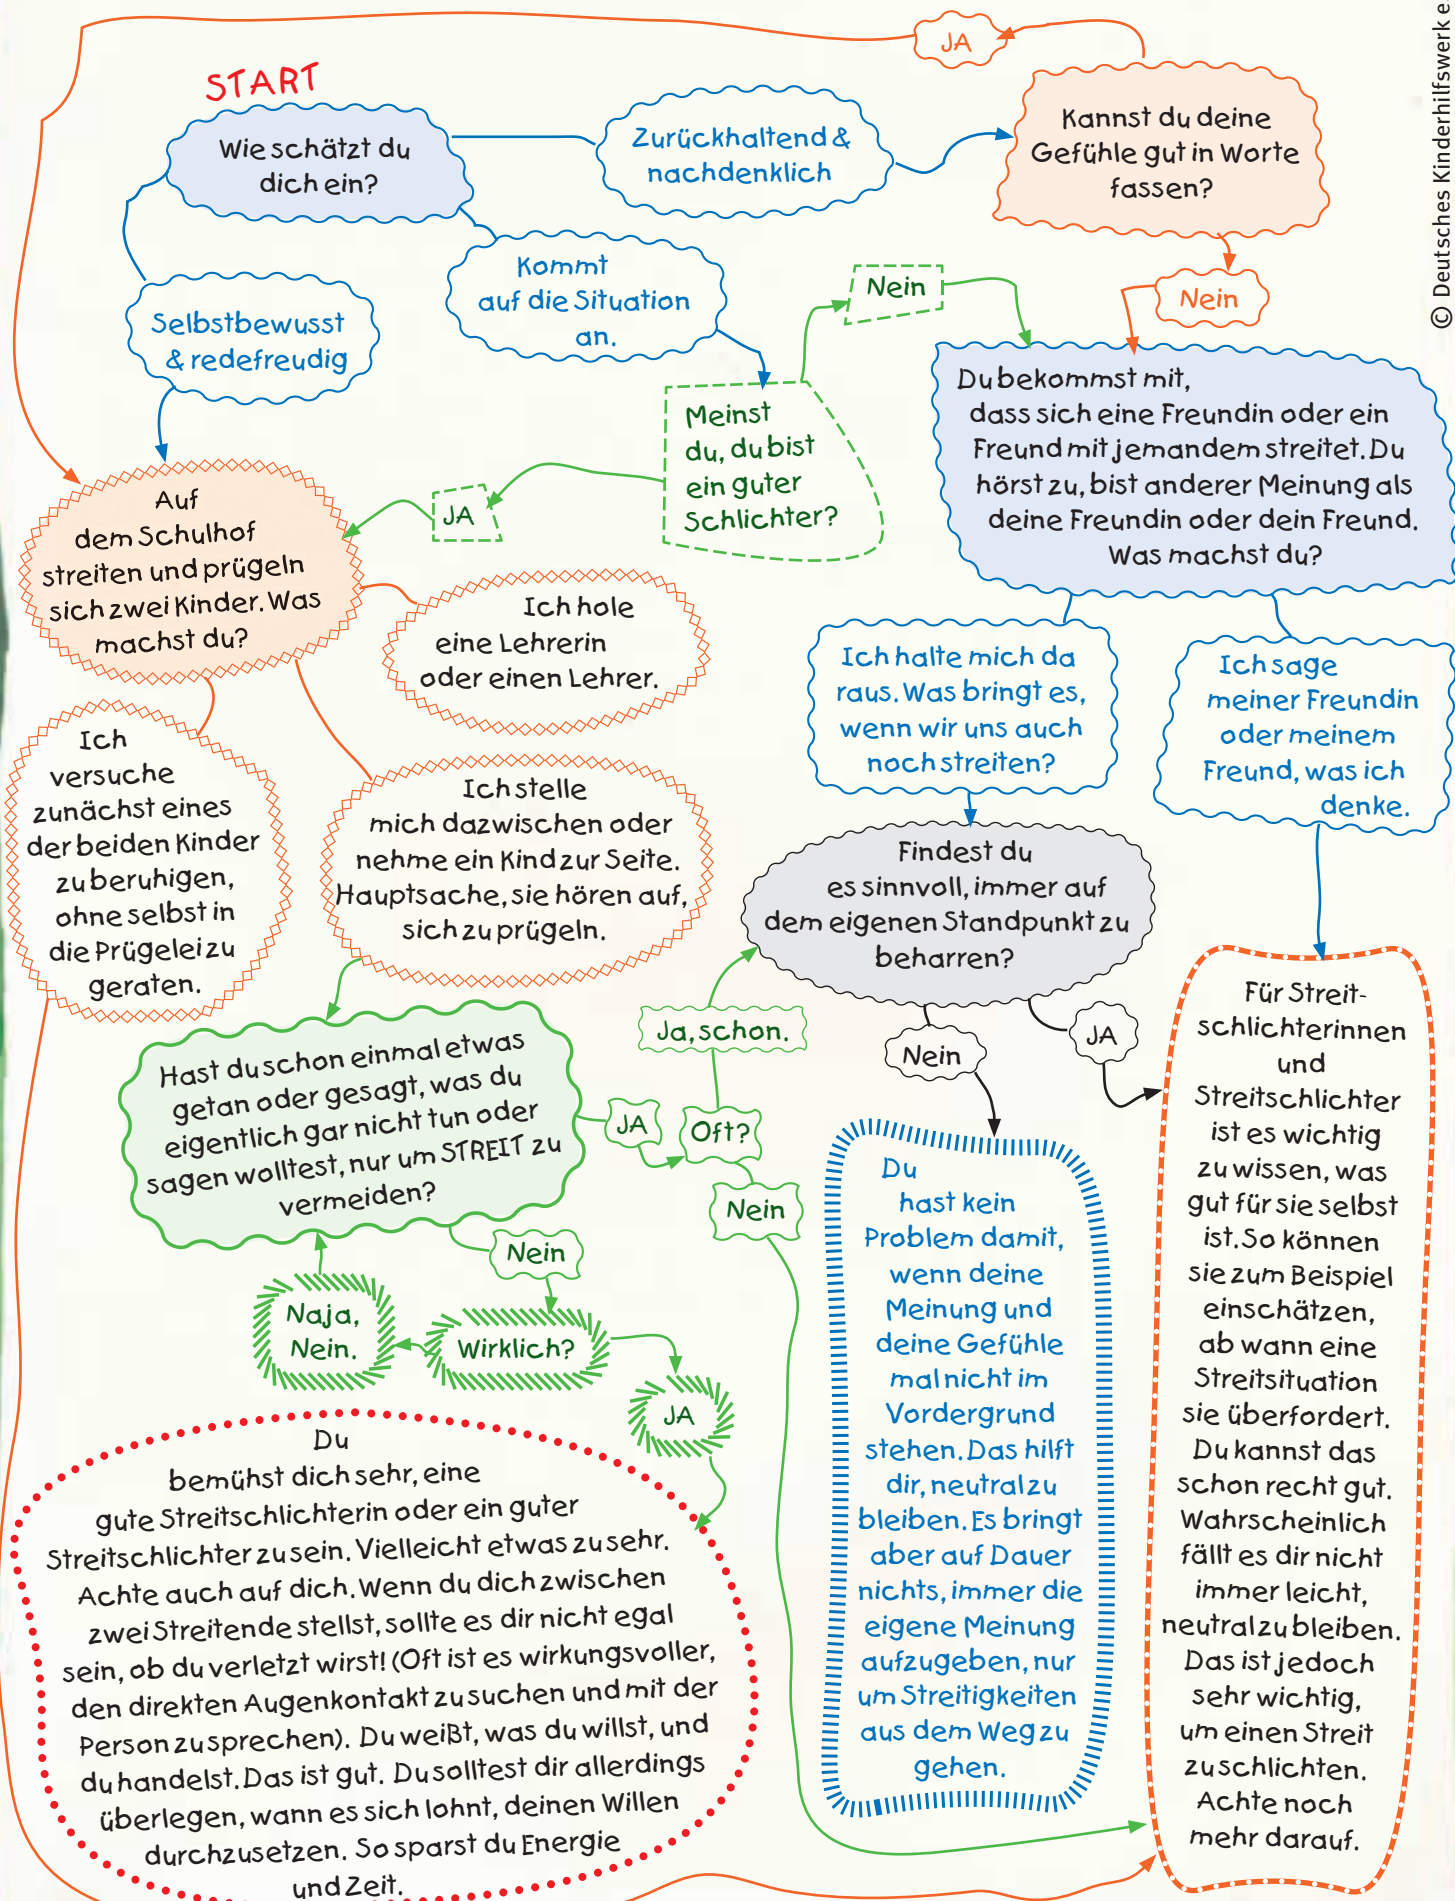 JA
START
Wie schätzt du
dich ein?
Zurückhaltend &
nachdenklich
Kannst du deine
Gefühle gut in Worte
fassen?
© Deutsches Kinderhilfswerk e.
Selbstbewusst
& redefreudig
Kommt
auf die Situation
an.
Nein
Nein
Meinst
du, du bist
ein guter
Schlichter?
JA
Du bekommst mit,
dass sich eine Freundin oder ein
Freund mit jemandem streitet. Du
hörst zu, bist anderer Meinung als
deine Freundin oder dein Freund.
Was machst du?
Auf
dem Schulhof
streiten und prügeln
sich zwei Kinder. Was
machst du?
Ich hole
eine Lehrerin
oder einen Lehrer.
Ich halte mich da
raus. Was bringt es,
wenn wir uns auch
noch streiten?
Ich sage
meiner Freundin
oder meinem
Freund, was ich
denke.
Ich
versuche
zunächst eines
der beiden Kinder
zu beruhigen,
ohne selbst in
die Prügelei zu
geraten.
Ich stelle
mich dazwischen oder
nehme ein Kind zur Seite.
Hauptsache, sie hören auf,
sich zu prügeln.
Findest du
es sinnvoll, immer auf
dem eigenen Standpunkt zu
beharren?
Ja, schon.
Nein
JA
Hast du schon einmal etwas
getan oder gesagt, was du
eigentlich gar nicht tun oder
sagen wolltest, nur um STREIT zu
vermeiden?
JA
Oft?
Nein
Nein
Naja,
Nein.
Wirklich?
JA
Du
bemühst dich sehr, eine
gute Streitschlichterin oder ein guter
Streitschlichter zu sein. Vielleicht etwas zu sehr.
Achte auch auf dich. Wenn du dich zwischen
zwei Streitende stellst, sollte es dir nicht egal
sein, ob du verletzt wirst! (Oft ist es wirkungsvoller,
den direkten Augenkontakt zu suchen und mit der
Person zu sprechen). Du weißt, was du willst, und
du handelst. Das ist gut. Du solltest dir allerdings
überlegen, wann es sich lohnt, deinen Willen
durchzusetzen. So sparst du Energie
und Zeit.
Du
hast kein
Problem damit,
wenn deine
Meinung und
deine Gefühle
mal nicht im
Vordergrund
stehen. Das hilft
dir, neutral zu
bleiben. Es bringt
aber auf Dauer
nichts, immer die
eigene Meinung
aufzugeben, nur
um Streitigkeiten
aus dem Weg zu
gehen.
Für Streit-
schlichterinnen
und
Streitschlichter
ist es wichtig
zu wissen, was
gut für sie selbst
ist. So können
sie zum Beispiel
einschätzen,
ab wann eine
Streitsituation
sie überfordert.
Du kannst das
schon recht gut.
Wahrscheinlich
fällt es dir nicht
immer leicht,
neutral zu bleiben.
Das ist jedoch
sehr wichtig,
um einen Streit
zu schlichten.
Achte noch
mehr darauf.